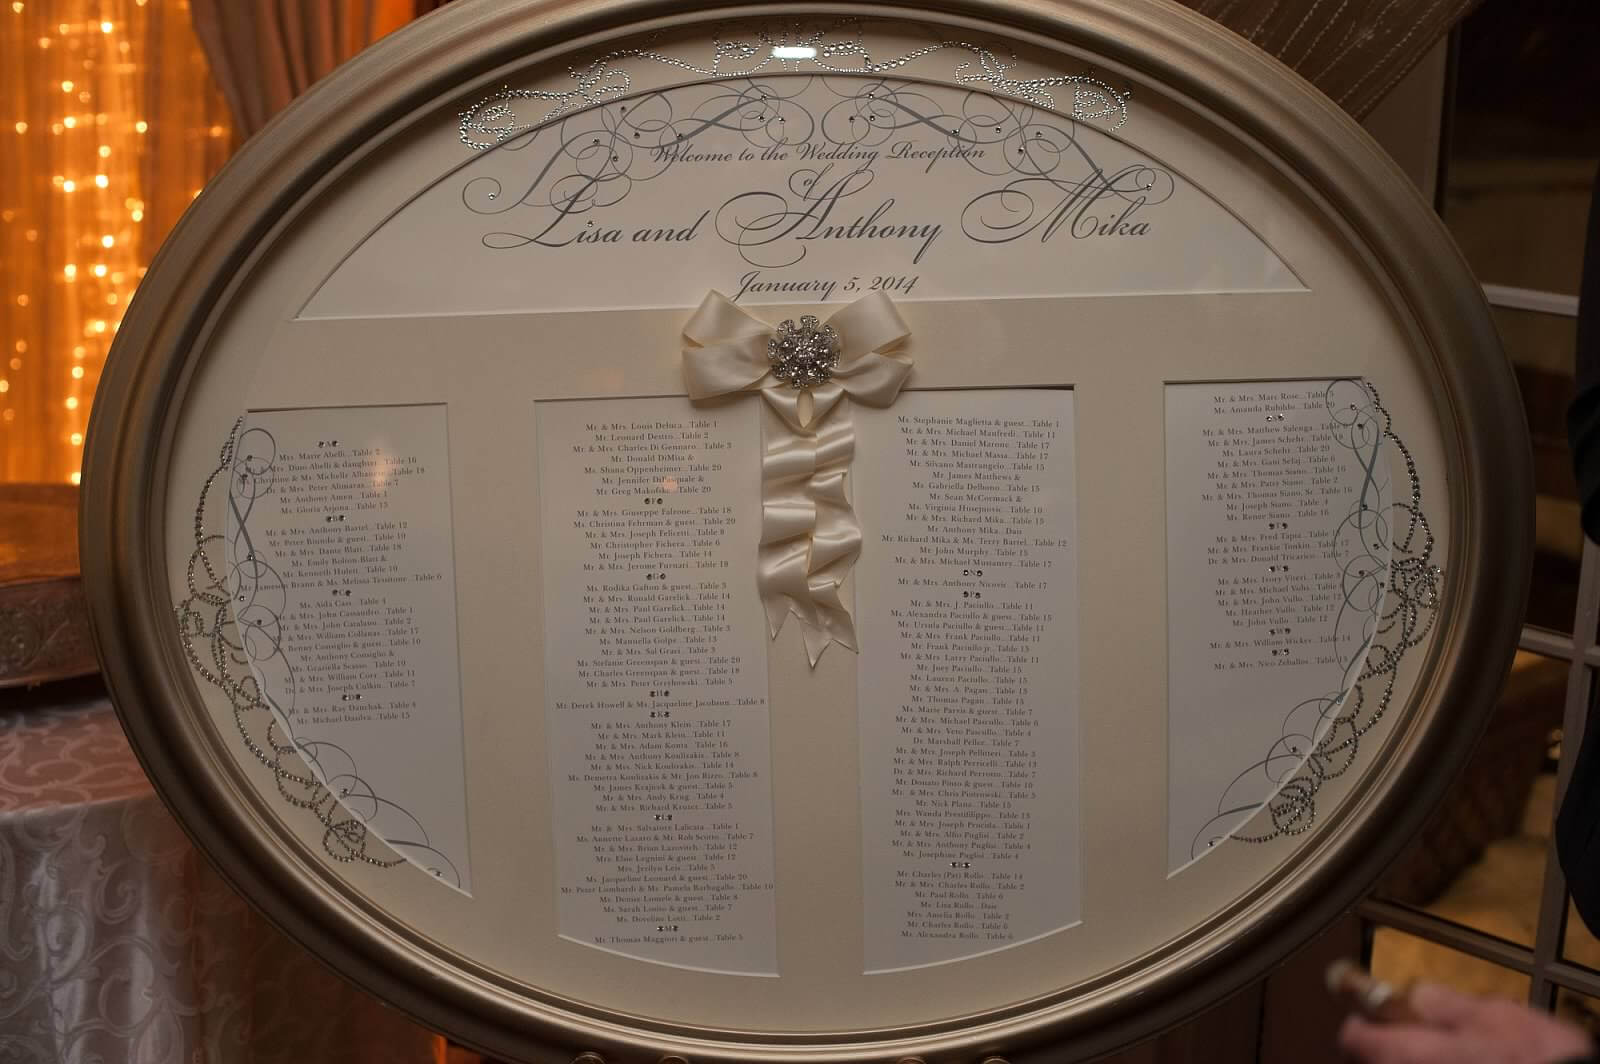 Welcome to the Wedding Reception
of
Lisa and Anthony Mika
January 5, 2014
A
Mrs. Marie Abelli...Table 2
Mrs. Dino Abelli & daughter...Table 16
Christine & Ms. Michelle Table 18
Dr. & Mrs. Peter Alimaras...Table 7
Mr. Anthony Amen...Table 1
Ms. Gloria Arjona...Table 15
B
Mr. & Mrs. Anthony Bartel...Table 12
Mr. Peter Biondo & guest...Table 19
Mr. & Mrs. Dante Blatt...Table 18
Ms. Emily Bolton-Blatt &
Mr. Kenneth Hulett...Table 10
Mr. Jameson Brann & Ms. Melissa Tessitone...Table 6
C
Ms. Aida Cass...Table 4
Mr. & Mrs. John Cassandro...Table 1
Mr. & Mrs. John Catalano...Table 2
Mr. & Mrs. William Collinas...Table 17
Benny Consiglio & guest...Table 10
Mr. Anthony Consiglio &
Ms. Graziella Scasso...Table 19
Mr. & Mrs. William Corr...Table 11
Dr. & Mrs. Joseph Culkin...Table 7
D
Mr. & Mrs. Ray Danchak...Table 4
Mr. Michael Dasilva...Table 15
Mr. & Mrs. Louis Deluca...Table 1
Mr. Leonard Destro...Table 2
Mr. & Mrs. Charles Di Gennaro...Table 3
Mr. Donald DiMisa &
Ms. Shana Oppenheimer...Table 20
Ms. Jennifer DiPasquale &
Mr. Greg Makofske...Table 20
F
Mr. & Mrs. Giuseppe Falzone...Table 18
Ms. Christina Fehrman & guest...Table 20
Mr. & Mrs. Joseph Felicetti...Table 8
Mr. Christopher Fichera...Table 6
Mr. Joseph Fichera...Table 14
Mr. & Mrs. Jerome Furnari...Table 19
G
Ms. Rodika Gafton & guest...Table 3
Mr. & Mrs. Ronald Garelick...Table 14
Mr. & Mrs. Paul Garelick...Table 14
Mr. & Mrs. Paul Garelick...Table 14
Mr. & Mrs. Nelson Goldberg...Table 3
Ms. Manuella Golpe...Table 13
Mr. & Mrs. Sal Gravi...Table 3
Ms. Stefanie Greenspan & guest...Table 20
Mr. Charles Greenspan & guest...Table 18
Mr. & Mrs. Peter Grzybowski...Table 5
H
Mr. Derek Howell & Ms. Jacqueline Jacobson...Table 8
K
Mr. & Mrs. Anthony Klein...Table 17
Mr. & Mrs. Mark Klein...Table 11
Mr. & Mrs. Adam Konta...Table 16
Mr. & Mrs. Anthony Koulizakis...Table 8
Mr. & Mrs. Nick Koulizakis...Table 14
Ms. Demetra Koulizakis & Mr. Jon Rizzo...Table 8
Mr. James Krajicek & guest...Table 5
Mr. & Mrs. Andy Krug...Table 4
Mr. & Mrs. Richard Kruzer...Table 5
L
Mr. & Mrs. Salvatore Lalicata...Table 1
Ms. Annette Lazaro & Mr. Rob Scotto...Table 7
Mr. & Mrs. Brian Lazovitch...Table 12
Mrs. Elsie Legnini & guest...Table 12
Mrs. Jerilyn Leis...Table 5
Ms. Jacqueline Leonard & guest...Table 20
Mr. Peter Lombardi & Ms. Pamela Barbagallo...Table 10
Ms. Denise Lomele & guest...Table 8
Ms. Sarah Losito & guest...Table 7
Ms. Doveline Loti...Table 2
M
Mr. Thomas Maggiori & guest...Table 5
Ms. Stephanie Maglietta & guest...Table 1
Mr. & Mrs. Michael Manfredi...Table 11
Mr. & Mrs. Daniel Marone...Table 17
Mr. & Mrs. Michael Massa...Table 17
Mr. Silvano Mastrangelo...Table 15
Mr. James Matthews &
Ms. Gabriella Delbono...Table 15
Mr. Sean McCormack &
Ms. Virginia Husejnovic...Table 10
Mr. & Mrs. Richard Mika...Table 15
Mr. Anthony Mika...Dais
Mr. Richard Mika & Ms. Terry Bartel...Table 12
Mr. John Murphy...Table 15
Mr. & Mrs. Michael Mustaney...Table 17
N
Mr. & Mrs. Anthony Nicovic...Table 17
P
Mr. & Mrs. J. Paciullo...Table 11
Ms. Alexandra Paciullo & guest...Table 15
Ms. Ursula Paciullo & guest...Table 11
Mr. & Mrs. Frank Paciullo...Table 11
Mr. Frank Paciullo jr...Table 15
Mr. & Mrs. Larry Paciullo...Table 11
Mr. Joey Paciullo...Table 15
Ms. Lauren Paciullo...Table 15
Mr. & Mrs. A. Pagan...Table 13
Mr. Thomas Pagan...Table 15
Ms. Marie Parvis & guest...Table 7
Mr. & Mrs. Michael Pascullo...Table 6
Mr. & Mrs. Veto Pascullo...Table 4
Dr. Marshall Pellor...Table 7
Mr. & Mrs. Joseph Pellitteri...Table 3
Mr. & Mrs. Ralph Perricelli...Table 13
Dr. & Mrs. Richard Perrotto...Table 7
Mr. Donato Pinso & guest...Table 10
Mr. & Mrs. Chris Piotrowski...Table 5
Mr. Nick Plana...Table 15
Mrs. Wanda Prestifilippo...Table 13
Mr. & Mrs. Joseph Procida...Table 1
Mr. & Mrs. Alfio Puglisi...Table 2
Mr. & Mrs. Anthony Puglisi...Table 4
Ms. Josephine Puglisi...Table 4
R
Mr. Charles (Pat) Rollo...Table 14
Mr. & Mrs. Charles Rollo...Table 2
Mr. Paul Rollo...Table 6
Ms. Lisa Rollo...Dais
Mrs. Amelia Rollo...Table 2
Mr. Charles Rollo...Table 6
Mr. Alexandra Rollo...Table 6
Mr. & Mrs. Marc Rose...Table 5
Ms. Amanda Rubildo...Table 20
S
Mr. & Mrs. Matthew Salenga...Table
Mr. & Mrs. James Schehr...Table
Ms. Laura Schehr...Table 20
Mr. & Mrs. Gani Sefaj...Table 6
Mr. & Mrs. Thomas Siano...Table 16
Mr. & Mrs. Patsy Siano...Table 2
Mr. & Mrs. Thomas Siano, Sr...Table 16
Mr. Joseph Siano...Table 4
Ms. Renee Siano...Table 16
T
Mr. & Mrs. Fred Tapia...Table 13
Mr. & Mrs. Frankie Tonkin...Table 17
Dr. & Mrs. Donald Tricarico...Table 7
V
Mr. & Mrs. Ivory Viteri...Table 3
Mr. & Mrs. Michael Vullo...Table 8
Mr. & Mrs. John Vullo...Table 12
Ms. Heather Vullo...Table 12
Mr. John Vullo...Table 12
W
Mr. & Mrs. William Wickes...Table 14
Z
Mr. & Mrs. Nico Zeballos...Table 18